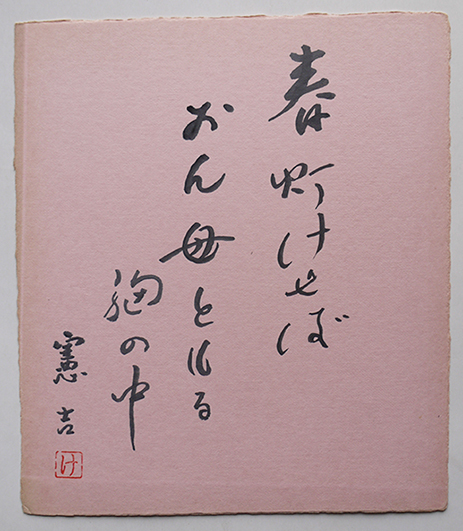 春灯けせば
おん母とゐる
胸の中
憲吉
け